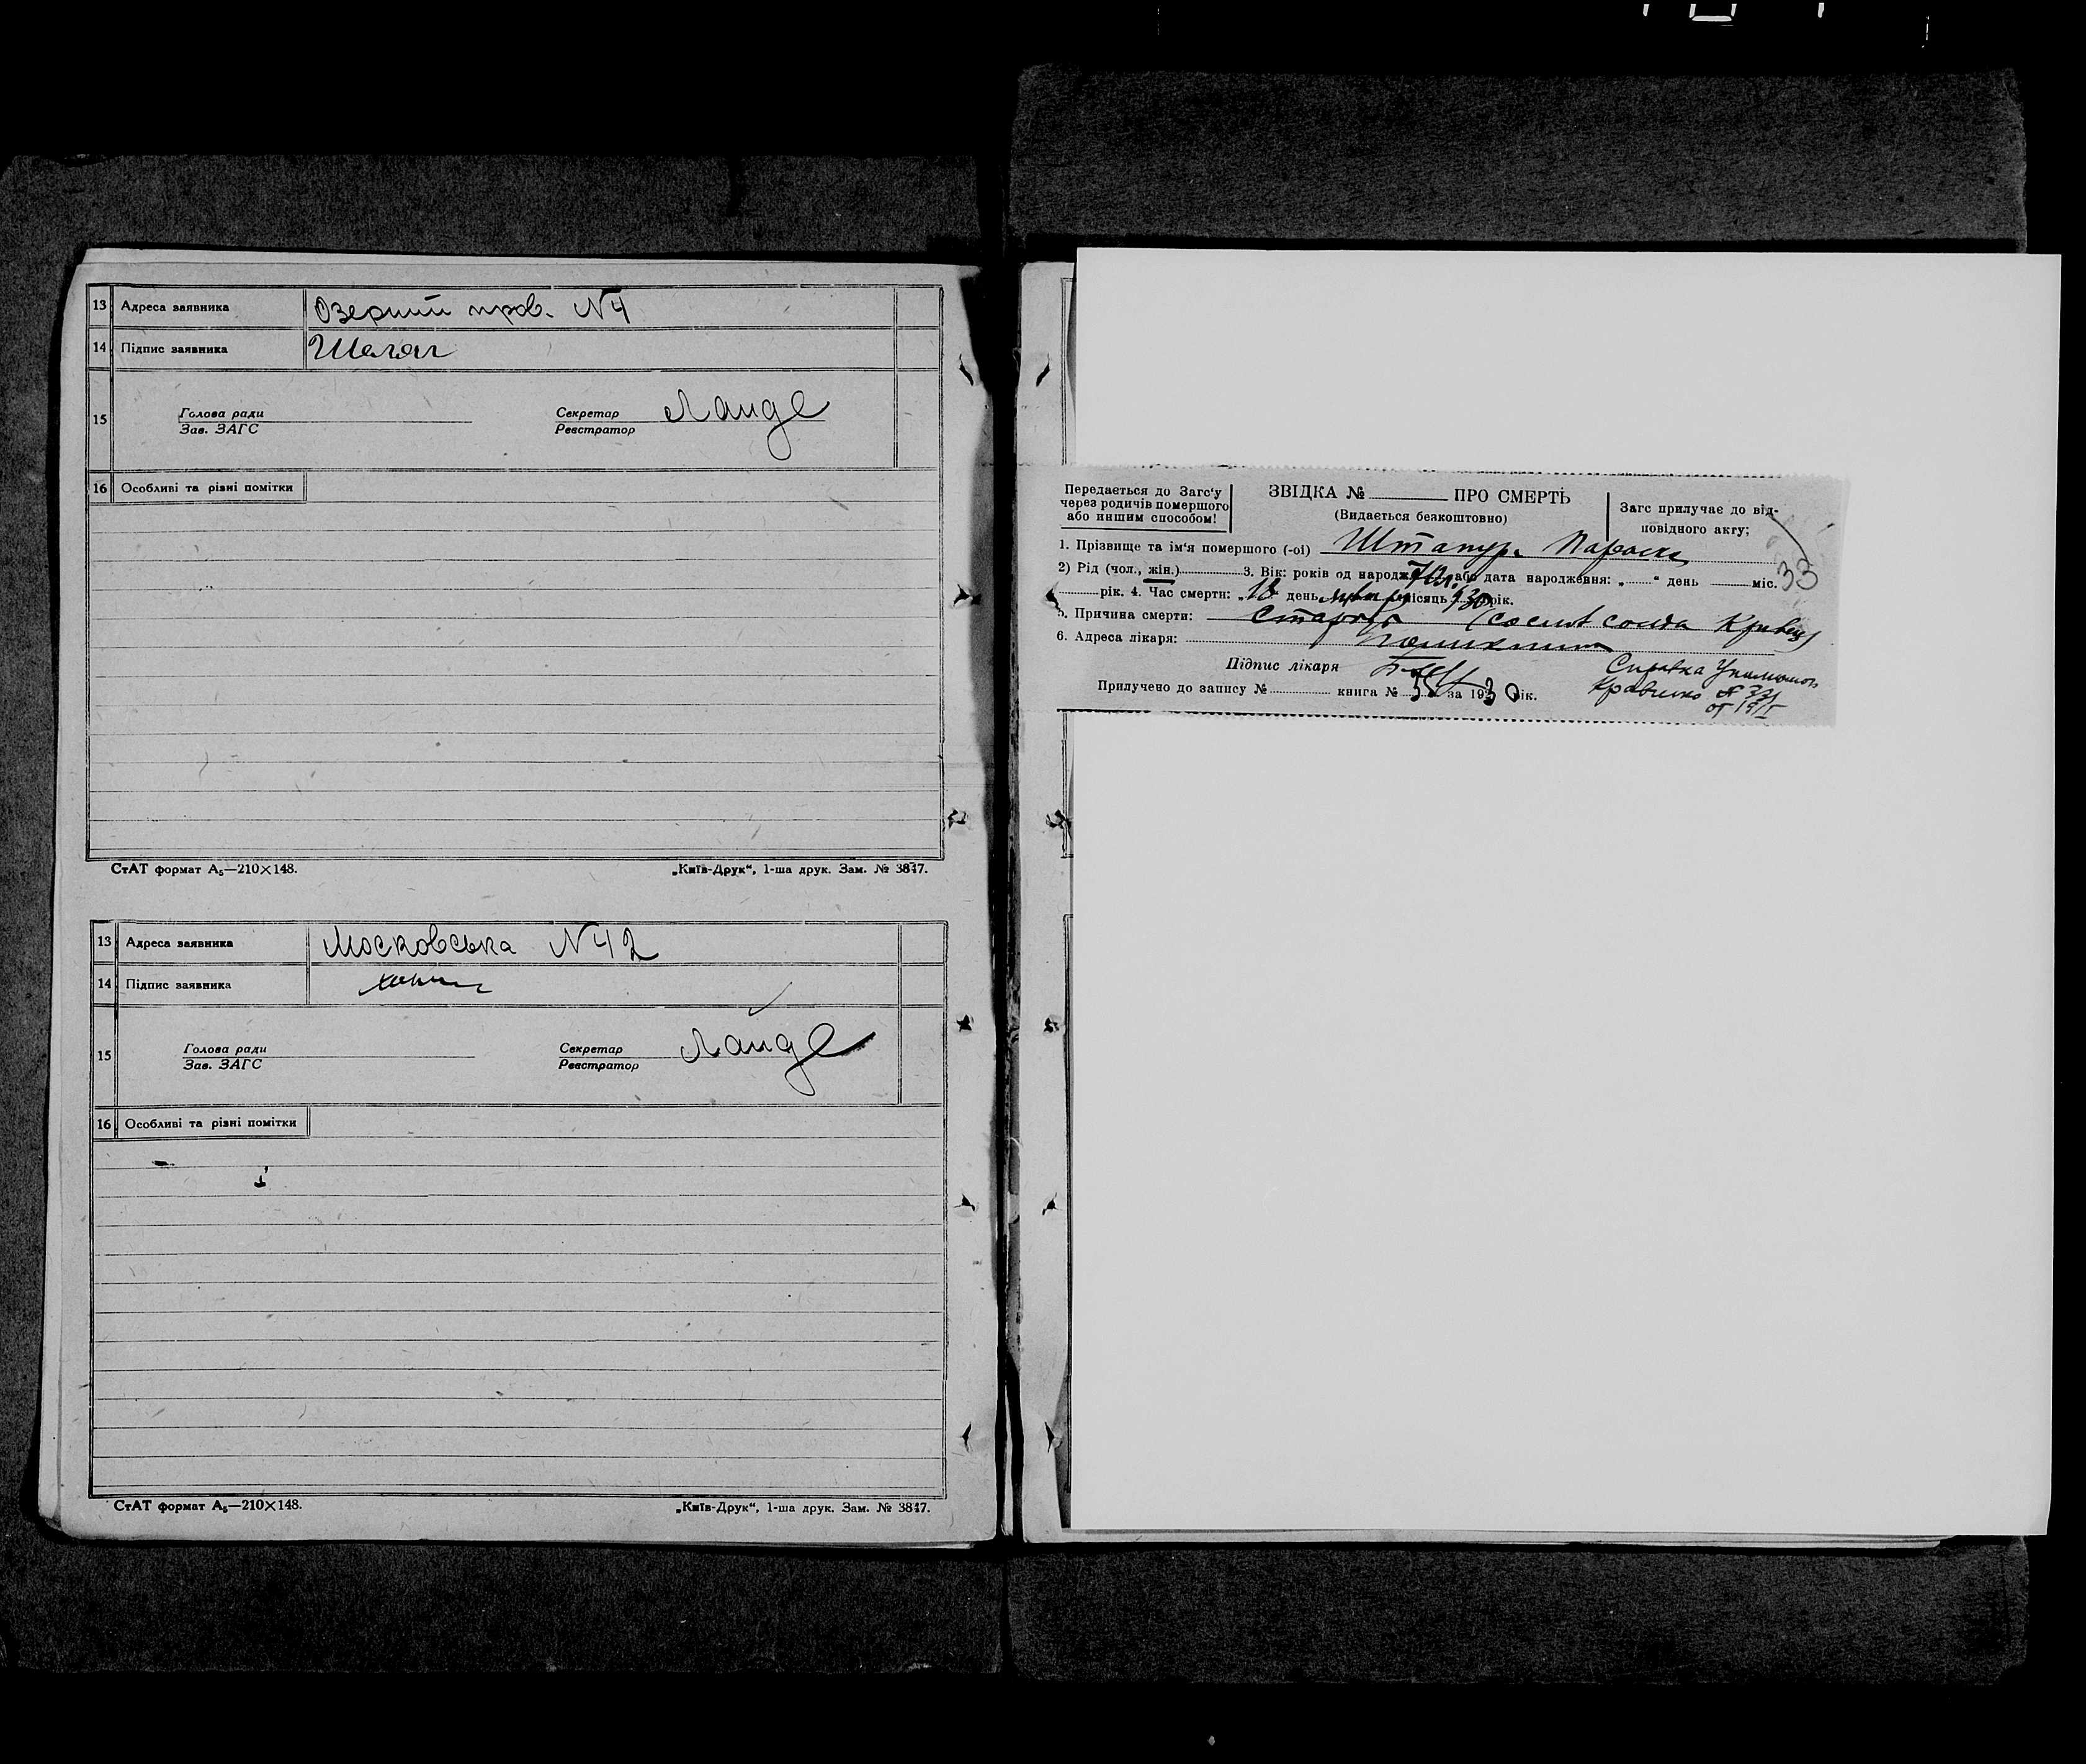 13 Адреса заявника Озерний пров. N4
14 Підпис заявника
15 Голова ради Секретар Ланде
Зав. ЗАГС Реєстратор
16 Особливі та різні помітки
СтАТ формат А₅—210×148. „Київ-Друк“, 1-ша друк. Зам. № 3847.
13 Адреса заявника Московська N42
14 Підпис заявника
15 Голова ради Секретар Ланде
Зав. ЗАГС Реєстратор
16 Особливі та різні помітки
СтАТ формат А₅—210×148. „Київ-Друк“, 1-ша друк. Зам. № 3847.
Передається до Загс'у
через родичів помершого
або иншим способом!
ЗВІДКА № ПРО СМЕРТЬ
(Видається безкоштовно)
Загс прилучає до від-
повідного акту;
33
1. Прізвище та ім'я помершого (-ої)
2) Рід (чол., жін.) 3. Вік: років од народж 70 л. або дата народження: „ “ день міс.
рік. 4. Час смерти: „18 день місяць 930 рік.
5. Причина смерти:
6. Адреса лікаря:
Підпис лікаря
Справка
Прилучено до запису № книга № за 1930 рік.